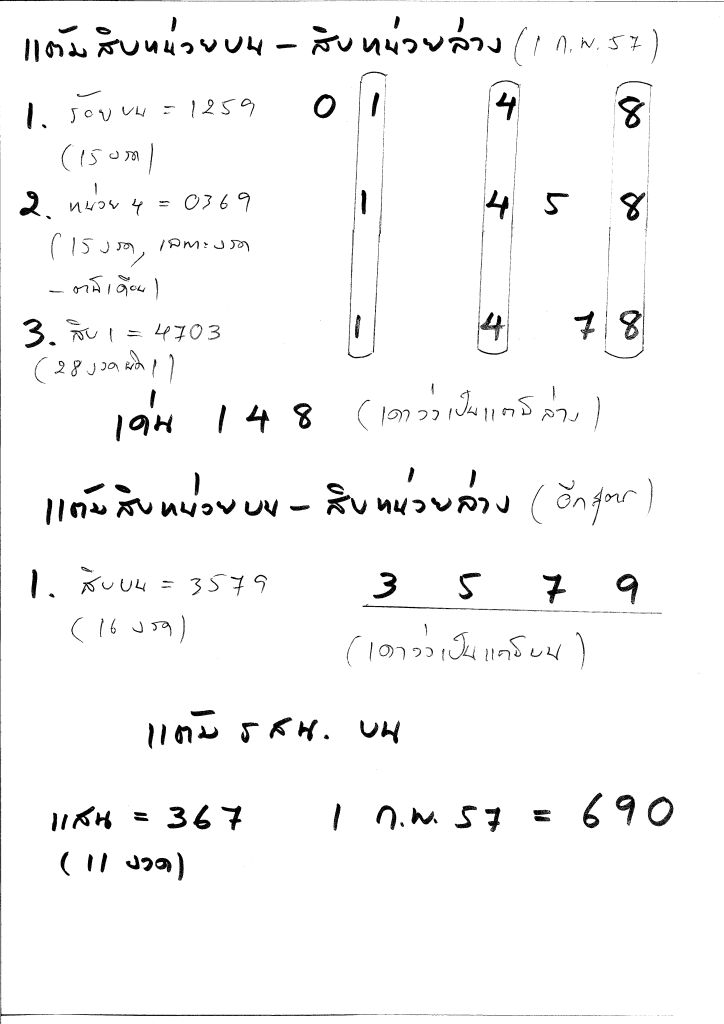 แต้มสิบหน่วยบน – สิบหน่วยล่าง (1 ก.พ. 57)
1. ร้อยบน = 1259 0 1 4 8
(15 งวด)
2. หน่วย 4 = 0369 1 4 5 8
(15 งวด, เฉพาะงวด
– ต้นเดือน)
3. สิบ 1 = 4703 1 4 7 8
(28 งวดผิด 1)
เด่น 1 4 8 (เดาว่าเป็นแต้มล่าง)
แต้มสิบหน่วยบน – สิบหน่วยล่าง (อีกสูตร)
1. สิบบน = 3579 3 5 7 9
(16 งวด) (เดาว่าเป็นแต้มบน)
แต้ม รสน. บน
แสน = 367 1 ก.พ. 57 = 690
(11 งวด)